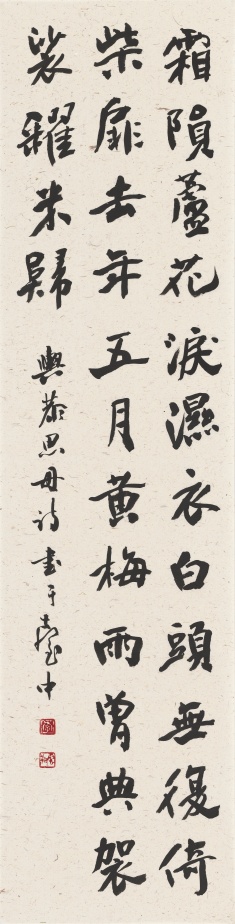 霜隕蘆花淚濕衣白頭無復倚
柴扉去年五月黃梅雨曾典袈
裟糴米歸
與恭思母詩書于臺中